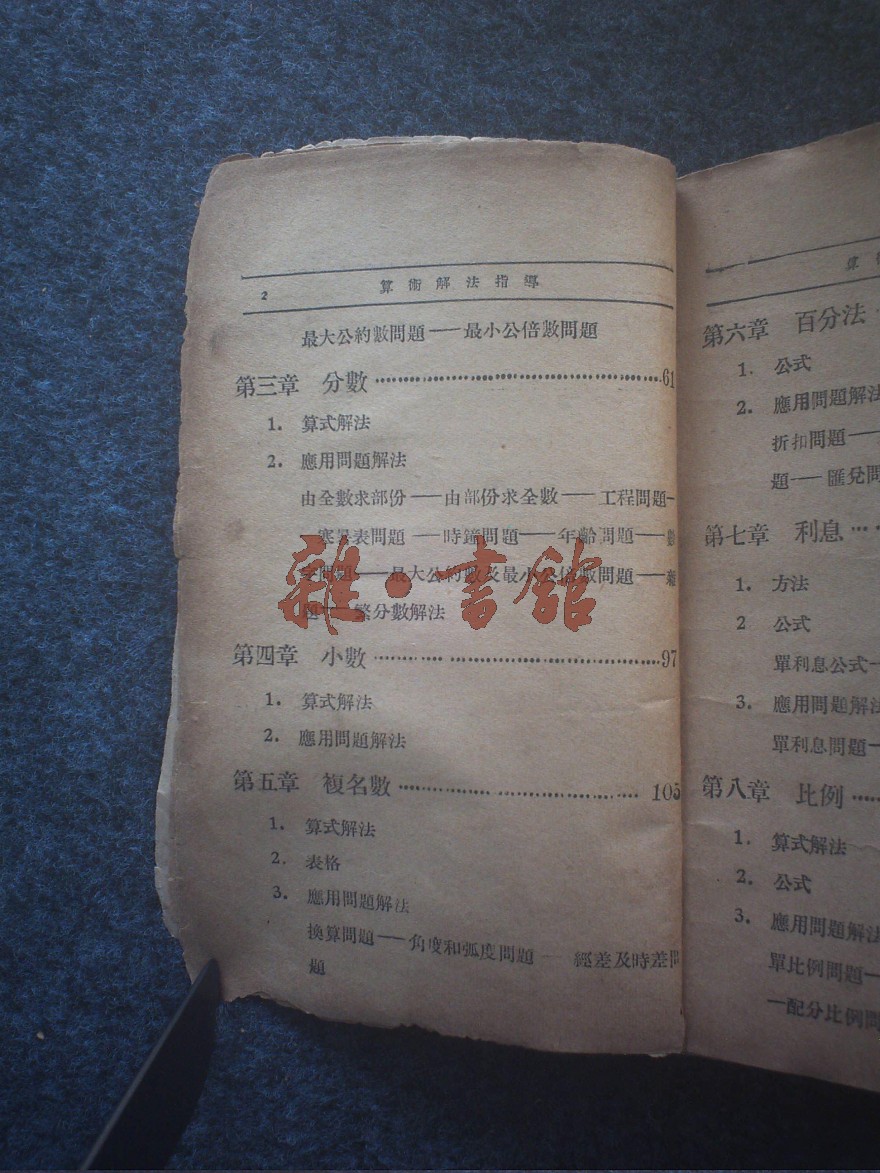 2
算術解法指導
最大公約數問題——最小公倍數問題
第三章 分數……………………61
1. 算式解法
2. 應用問題解法
由全數求部份——由部份求全數——工程問題—
寒暑表問題——時鐘問題——年齡問題——
字問題——最大公約數及最小公倍數問題——
題——繁分數解法
第四章 小數……………………97
1. 算式解法
2. 應用問題解法
第五章 複名數…………………… 105
1. 算式解法
2. 表格
3. 應用問題解法
換算問題——角度和弧度問題—— 經差及時差問
題
雜·書館
算
第六章 百分法…
1. 公式
2. 應用問題解法
折扣問題——
題——匯兌問
第七章 利息…
1. 方法
2 公式
單利息公式—
3. 應用問題解法
單利息問題—
第八章 比例…
1. 算式解法
2. 公式
3. 應用問題解法
單比例問題—
—配分比例問